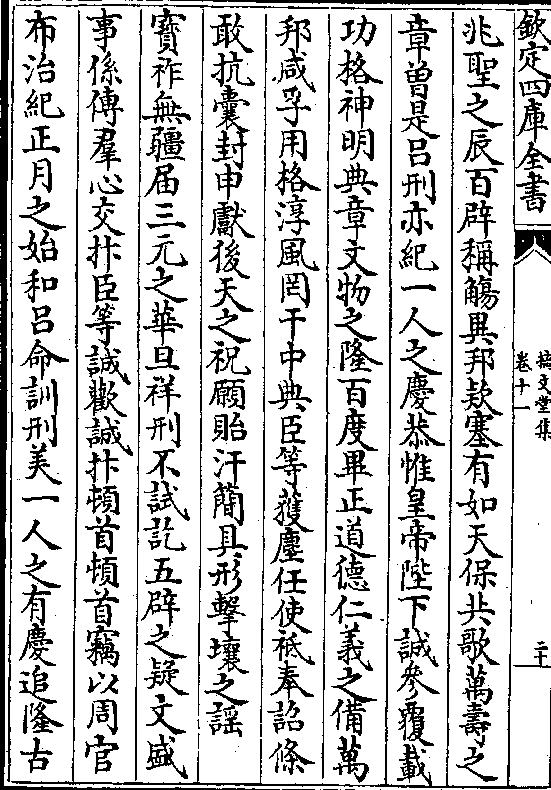 欽定四庫全書
摛文堂集
卷十一
二十
兆聖之辰百辟稱觴異邦欵塞有如天保共歌萬壽之
章曽是呂刑亦紀一人之慶恭惟皇帝陛下誠參覆載
功格神明典章文物之隆百度畢正道德仁義之備萬
邦咸孚用格淳風罔干中典臣等獲塵任使祗奉詔條
敢抗囊封申獻後天之祝願貽汗簡具形擊壤之謡
寳祚無疆届三元之華旦祥刑不試訖五辟之疑文盛
事係傳羣心交抃臣等誠歡誠抃頓首頓首竊以周官
布治紀正月之始和呂命訓刑美一人之有慶追隆古